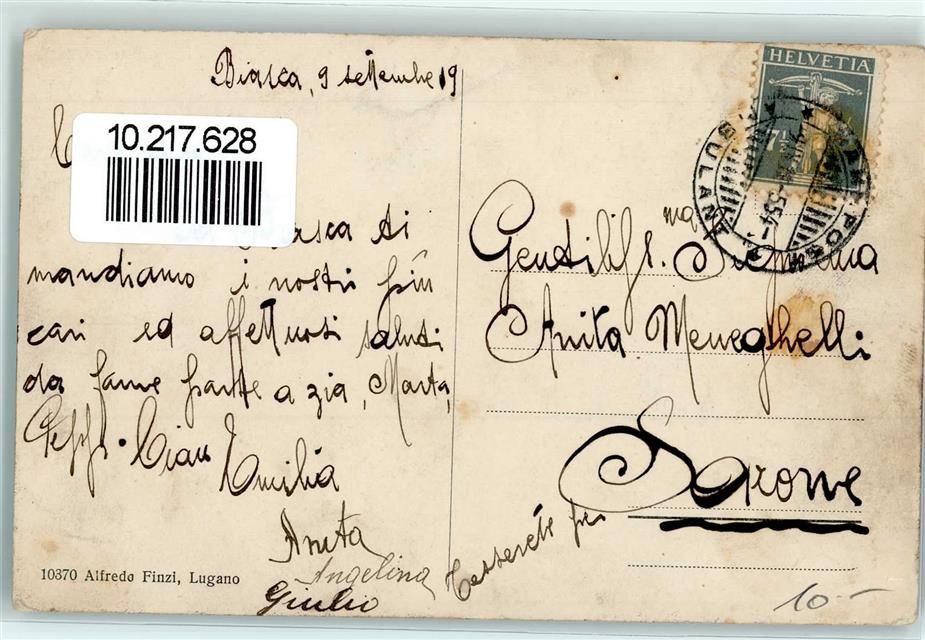 Biasca, 9 settembre 19
10.217.628
Biasca ti
mandiamo i nostri più
cari ed affettuosi saluti
da farne parte a zia, Marta,
Ciau
Emilia
Anita
Angelina
Giulio
10370 Alfredo Finzi, Lugano
HELVETIA
7½
AMBULANT
Gentilss.ma Signorina
Anita Meneghelli
Sarone
Tesserete per
10-